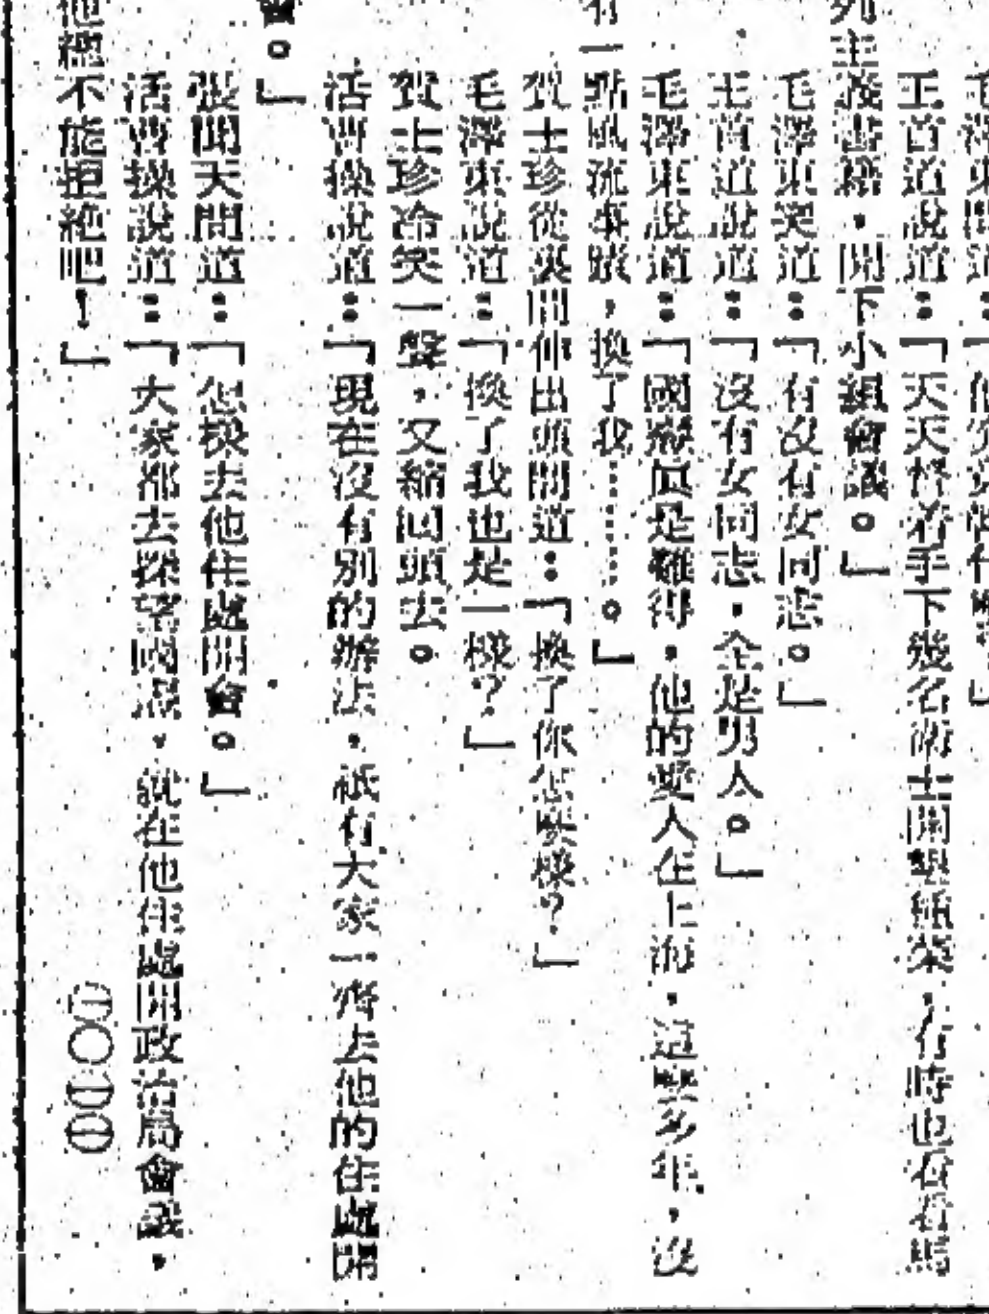 毛澤東問道：「他
王首道說道：「天天督着手下幾名衛士開墾種菜，有時也看看馬
列主義書籍，開下小組會議。」
毛澤東笑道：「有沒有女同志。」
王首道說道：「沒有女同志，全是男人。」
毛澤東說道：「國燾眞是難得，他的愛人在上海，這麼多年，沒
有一點風流事蹟，換了我………。」
賀士珍從裏間伸出頭問道：「換了你怎麽樣？」
毛澤東說道：「換了我也是一樣？」
賀士珍冷笑一聲，又縮回頭去。
活曹操說道：「現在沒有別的辦法，祇有大家一齊去他的住處開
會。」
張聞天問道：「怎樣去他住處開會。」
活曹操說道：「大家都去探望國燾，就在他住處開政治局會議，
他總不能拒絶吧！」